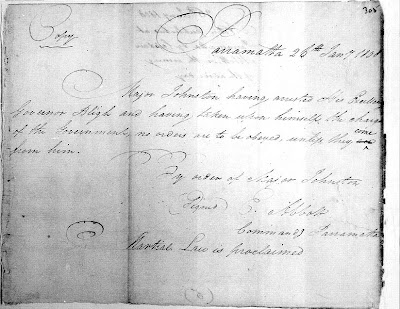 308
Copy
Parramatta 26th Jany 1808
Major Johnston having arrested His Excellency
Governor Bligh and having taken upon himself the charge
of the Government, no orders are to be obeyed until they come
from him.
By order of Major Johnston
Signed E. Abbott
Commandg Parramatta
Martial Law is proclaimed